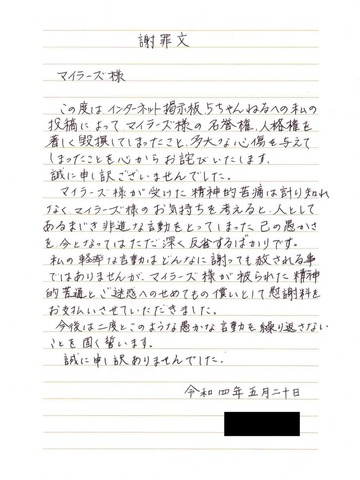 謝罪文
マイラーズ様
この度はインターネット掲示板5ちゃんねるへの私の
投稿によってマイラーズ様の名誉権、人格権を
著しく毀損してしまったこと、多大な心傷を与えて
しまったことを心からお詫びいたします。
誠に申し訳ございませんでした。
マイラーズ様が受けた精神的苦痛は計り知れ
なくマイラーズ様のお気持ちを考えると、人として
あるまじき非道な言動をとってしまった己の愚かさ
を今となってはただ深く反省するばかりです。
私の軽率な言動はどんなに謝っても放される事
ではありませんが、マイラーズ様が被られた精神
的苦道とご迷惑へのせめてもの償いとして慰謝料を
お支払いさせていただきました。
今後は二度とこのような愚かな言動を繰り返さない
ことを固く誓います。
誠に申し訳ありませんでした。
令和四年五月二十日